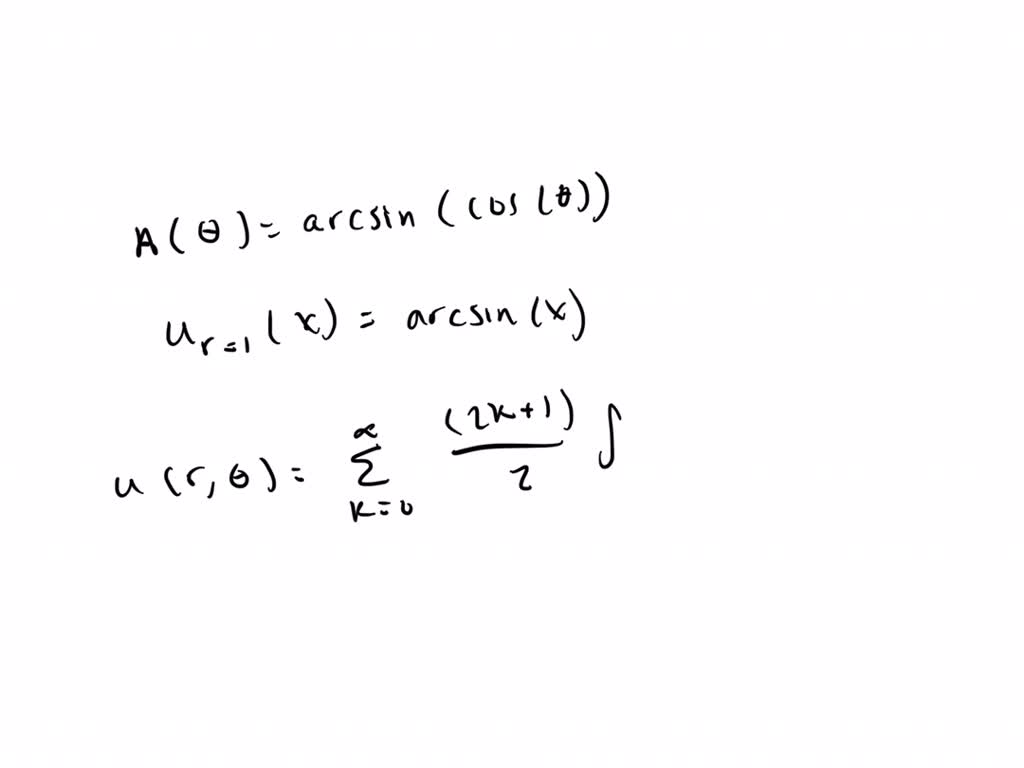 A(θ) = arcsin (cos(θ))
u_{r=1}(x) = arcsin(x)
u(r,θ) = ∑_{k=0}^{∞} (2k+1)/2 ∫